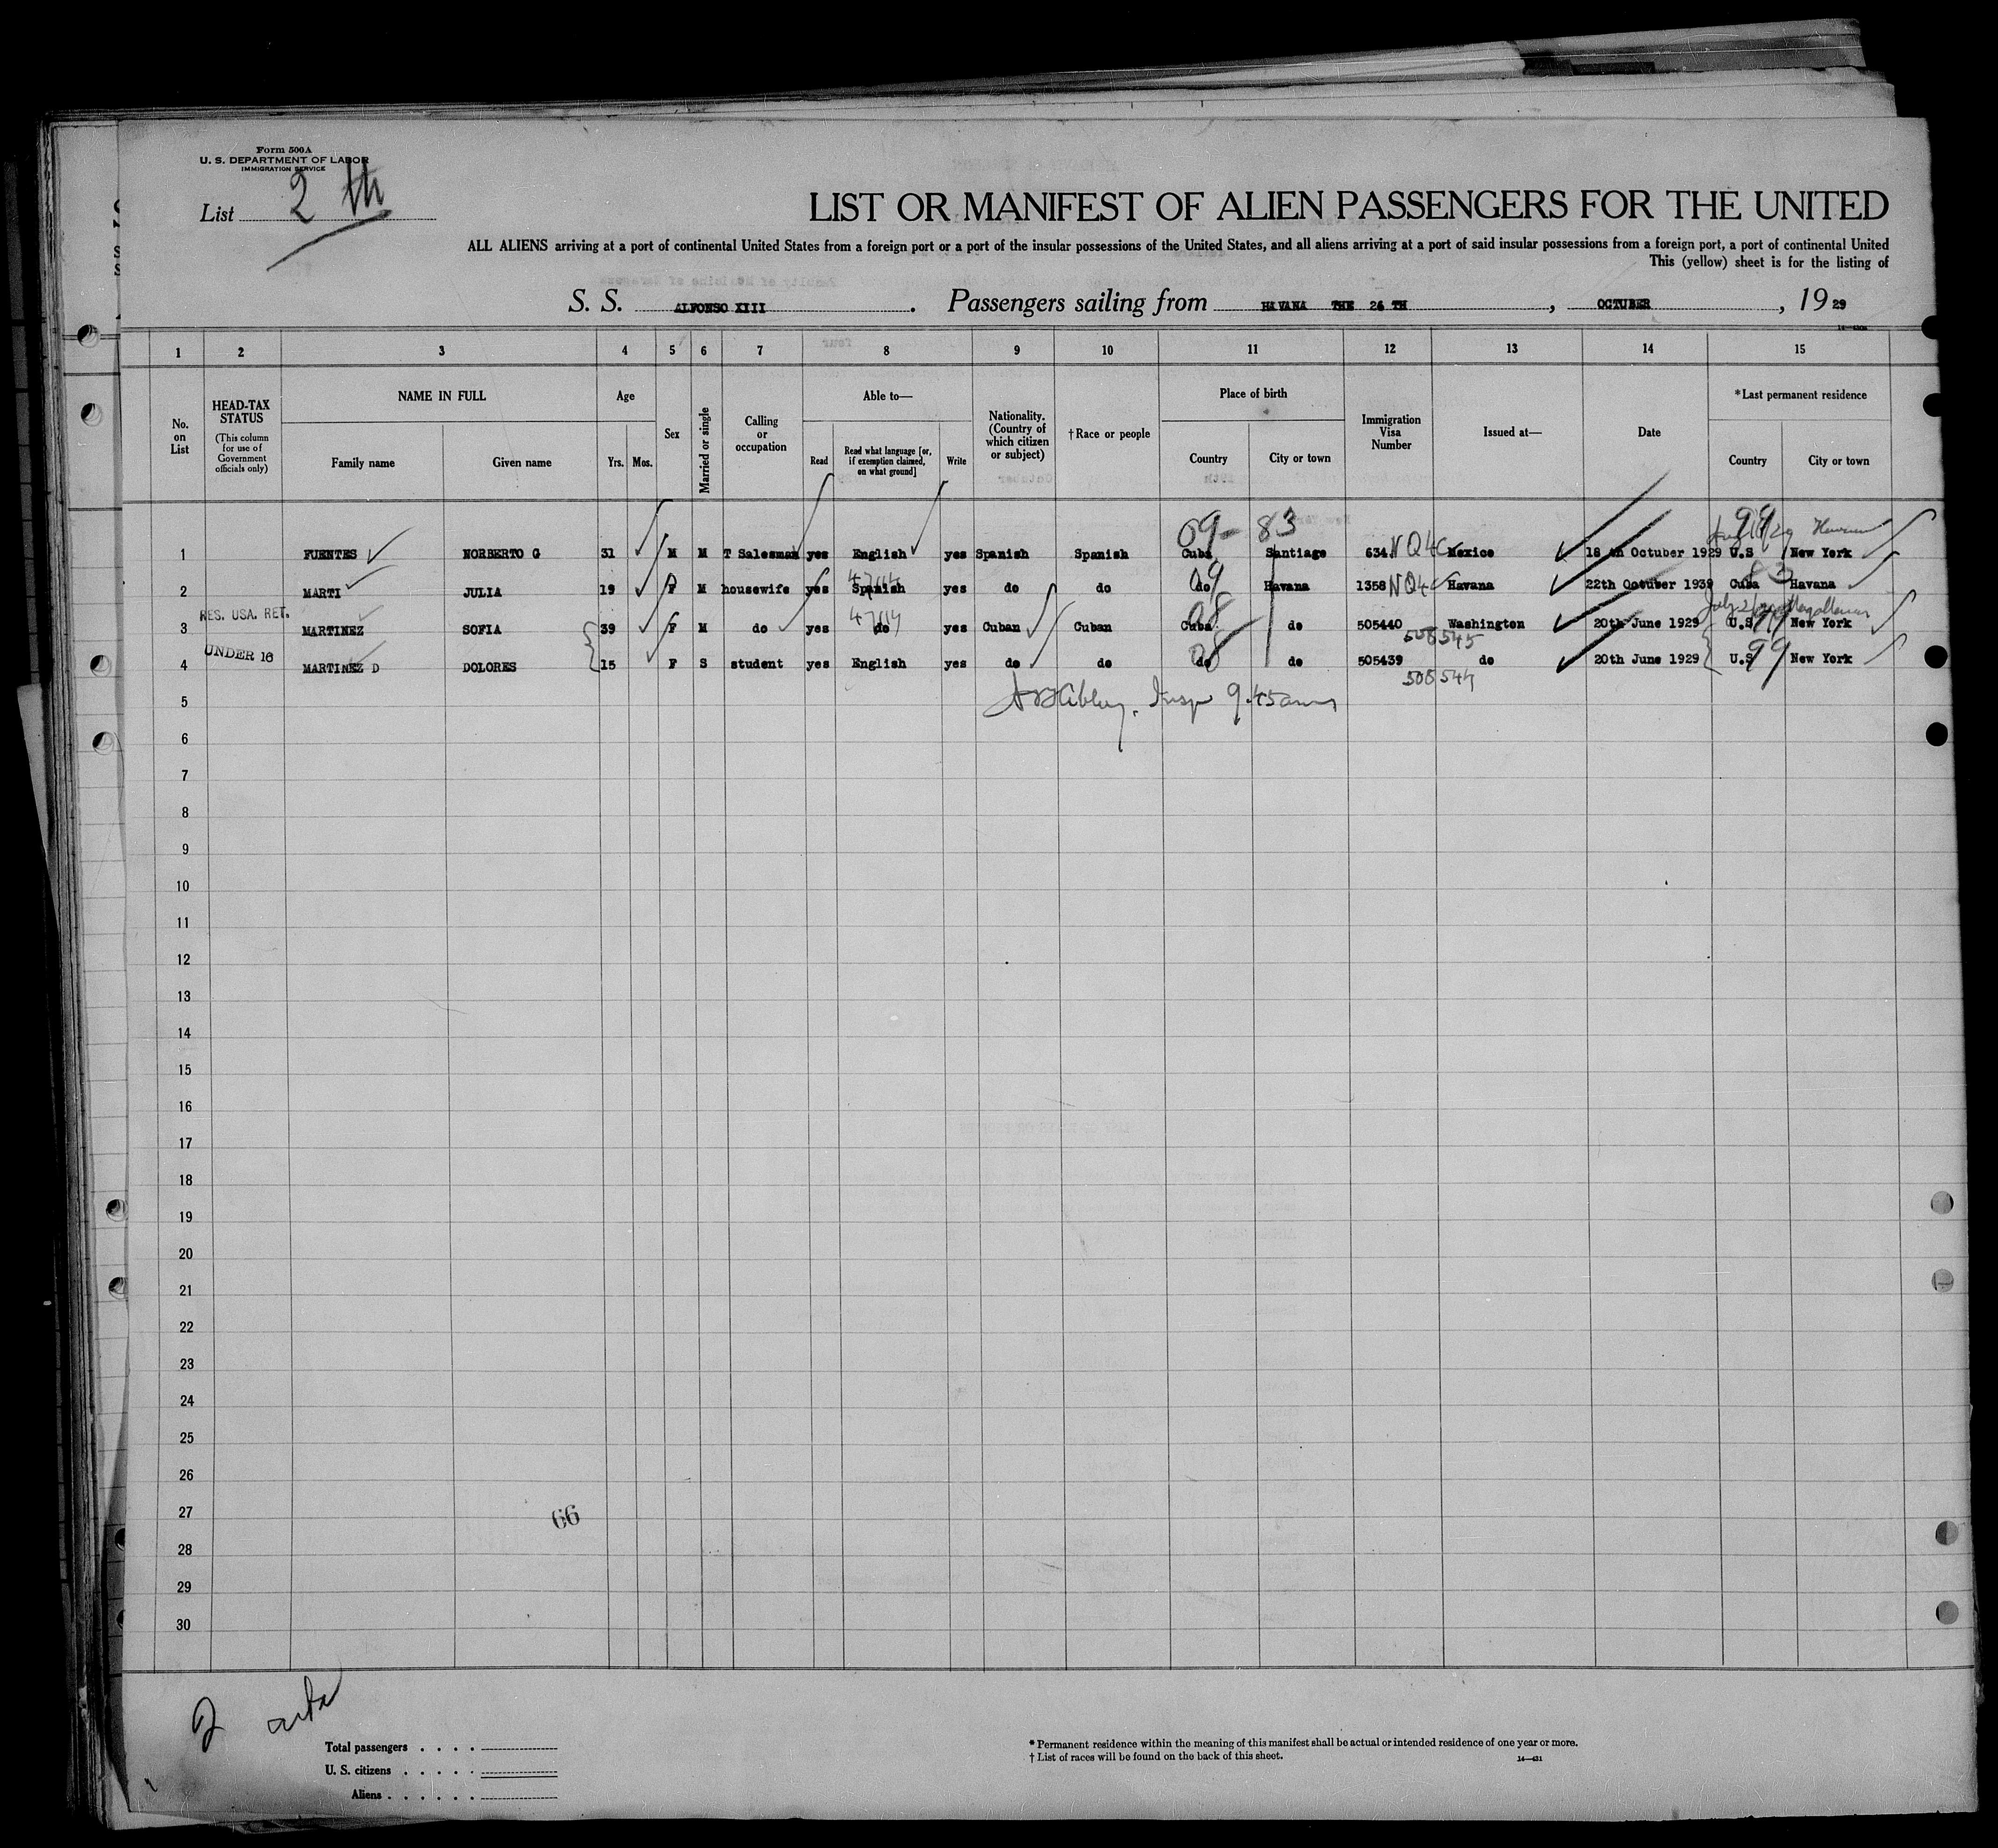 Form 500A
U. S. DEPARTMENT OF LABOR
IMMIGRATION SERVICE
List 2 th
LIST OR MANIFEST OF ALIEN PASSENGERS FOR THE UNITED
ALL ALIENS arriving at a port of continental United States from a foreign port or a port of the insular possessions of the United States, and all aliens arriving at a port of said insular possessions from a foreign port, a port of continental United
This (yellow) sheet is for the listing of
S. S. ALFONSO XIII . Passengers sailing from HAVANA THE 26 TH , OCTUBER , 19 29
1 2 3 4 5 6 7 8 9 10 11 12 13 14 15
No. on List
HEAD-TAX STATUS
(This column for use of Government officials only)
NAME IN FULL
Family name Given name
Age
Yrs. Mos.
Sex
Married or single
Calling or occupation
Able to—
Read
Read what language [or, if exemption claimed, on what ground]
Write
Nationality. (Country of which citizen or subject)
†Race or people
Place of birth
Country City or town
Immigration Visa Number
Issued at—
Date
*Last permanent residence
Country City or town
09- 83 99
1 FUENTES NORBERTO G 31 M M T Salesman yes English yes Spanish Spanish Cuba Santiago 634 NQ4C Mexico 18 th Octuber 1929 U.S New York
2 MARTI JULIA 19 F M housewife yes Spanish yes do do do Havana 1358 NQ4 Havana 22th Octuber 1939 Cuba Havana
RES. USA. RET.
3 MARTINEZ SOFIA 39 F M do yes do yes Cuban Cuban Cuba do 505440 Washington 20th June 1929 U.S New York
508545
UNDER 16
4 MARTINEZ D DOLORES 15 F S student yes English yes do do do do 505439 do 20th June 1929 U.S 99 New York
508544
5 Insp 9.45am
6
7
8
9
10
11
12
13
14
15
16
17
18
19
20
21
22
23
24
25
26
27
66
28
29
30
2
Total passengers . . . .
U. S. citizens . . . . .
Aliens . . . . . .
* Permanent residence within the meaning of this manifest shall be actual or intended residence of one year or more.
† List of races will be found on the back of this sheet.
14—431